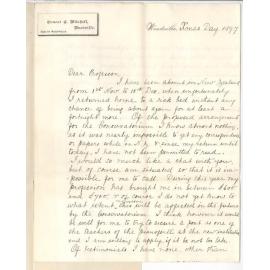 Ernest E. Mitchell,
Woodville,
South Australia
Woodville, Xmas Day 1897
Dear Professor
I have been absent in New Zealand
from 1st Nov. to 18th Dec. when unfortunately
I returned home to a sick bed without any
chance of being about again for at least a
fortnight more. Of the proposed arrangement
for the Conservatorium I know almost nothing,
as it was nearly impossible to get any correspondence
or papers while in N.Z. & since my return until
today, I have not been permitted to read.
I would so much like a chat with you,
but of course am situated so that it is im-
possible for me to call. During this year my
profession has brought me in between £600
and £700. & of course I do not yet know to
what extent this will be affected in the future
by the Conservatorium. I think however it would
be well for me to try to secure a post as one of
the teachers of the pianoforte at the new institution
and I am willing to apply, if it be not too late.
Of testimonials I have none other than